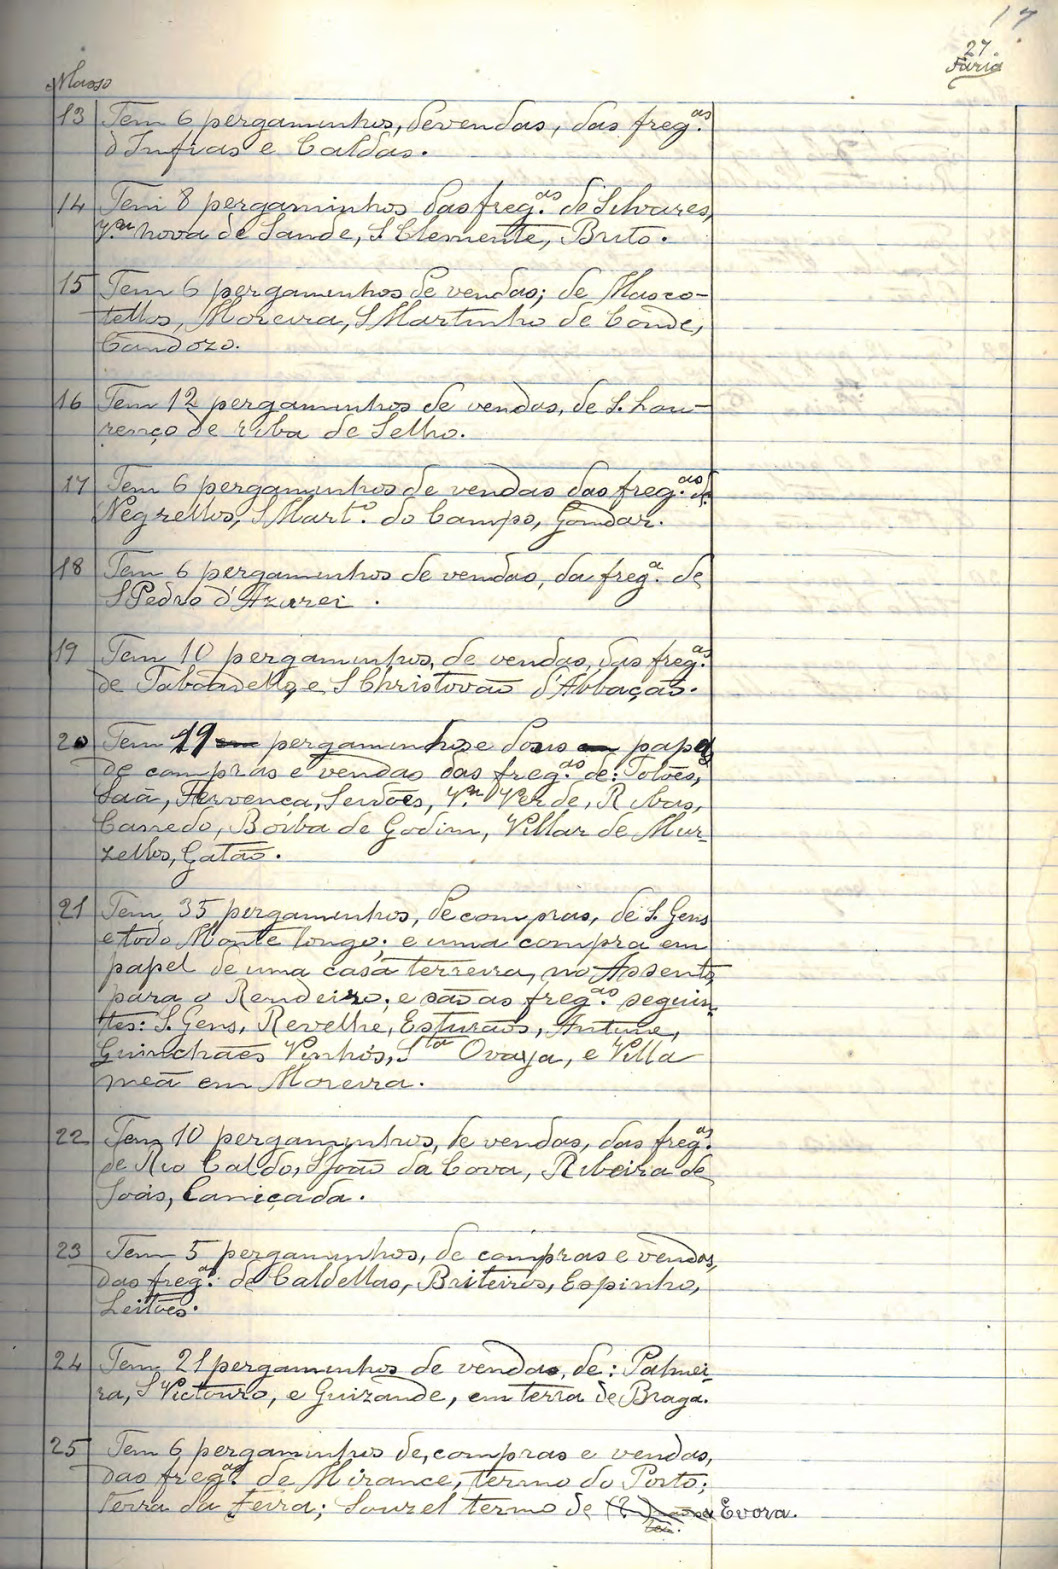 17
27.
Faria
Masso
13 Tem 6 pergaminhos, de vendas, das freg.as
d'Infias e Caldas.
14 Tem 8 pergaminhos das freg.as de Silvares,
V.a nova de Sande, S. Clemente, Brito.
15 Tem 6 pergaminhos de vendas; de Masco-
tellos, Moreira, S Martinho de Conde,
Candozo.
16 Tem 12 pergaminhos de vendas, de S. Lou-
renço de riba de Selho.
17 Tem 6 pergaminhos de vendas das freg.as de
Negrellos, S Mart.o do Campo, Gondar.
18 Tem 6 pergaminhos de vendas, da freg.a de
S Pedro d'Azurei.
19 Tem 10 pergaminhos, de vendas, das freg.as
de Taboadello, e S Christovão d'Abbação.
20 Tem 19 pergaminhos e dous papeis
de compras e vendas das freg.as de: Tolões,
Saã, Fervença, Serdões, V.a Verde, Ribas,
Carredo, Borba de Godim, Villar de Mur-
zellos, Gatão.
21 Tem 35 pergaminhos, de compras, de S. Gens
e todo Monte longo; e uma compra em
papel de uma casa terreira, no Assento,
para o Rendeiro; e são as freg.as seguin-
tes: S. Gens, Revelhe, Esturãos, Antime,
Guinchães Vinhós, S.ta Ovaya, e Villa
meã em Moreira.
22 Tem 10 pergaminhos, de vendas, das freg.as
de Rio Caldo, S João da Cova, Ribeira de
Soás, Caniçada.
23 Tem 5 pergaminhos, de compras e vendas,
das freg.as de Caldellas, Briteiros, Espinho,
Leitões.
24 Tem 21 pergaminhos de vendas, de: Palmei-
ra, S Victouro, e Guizande, em terra de Braga.
25 Tem 6 pergaminhos de, compras e vendas,
das freg.as de Mirance, termo do Porto;
terra da Feira; Sourel termo de (?) Evora.